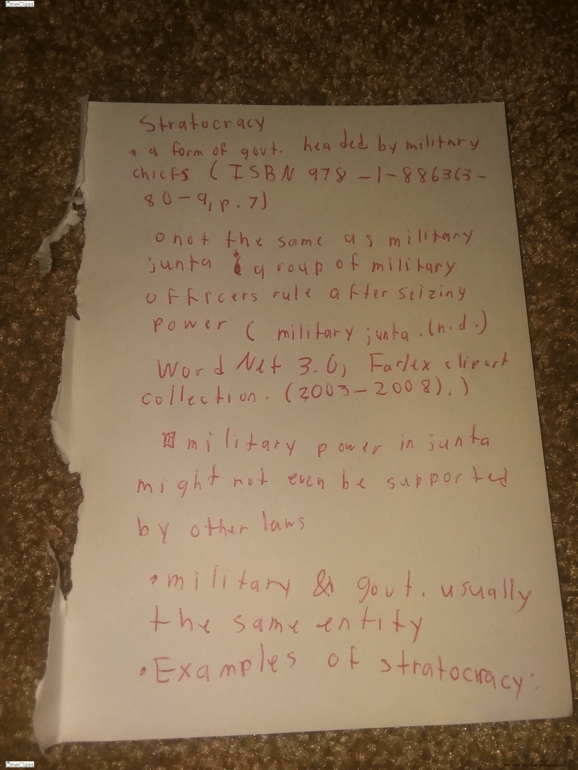 OneClass
Stratocracy
• a form of govt. headed by military
chiefs (ISBN 978-1-886363-
80-9, p.7)
o not the same as military
junta (group of military
officers rule after seizing
power ( military junta. (n.d.)
Word Net 3.0, Farlex clipart
collection. (2003-2008). )
military power in junta
might not even be supported
by other laws
• military & govt. usually
the same entity
• Examples of stratocracy:
OneClass